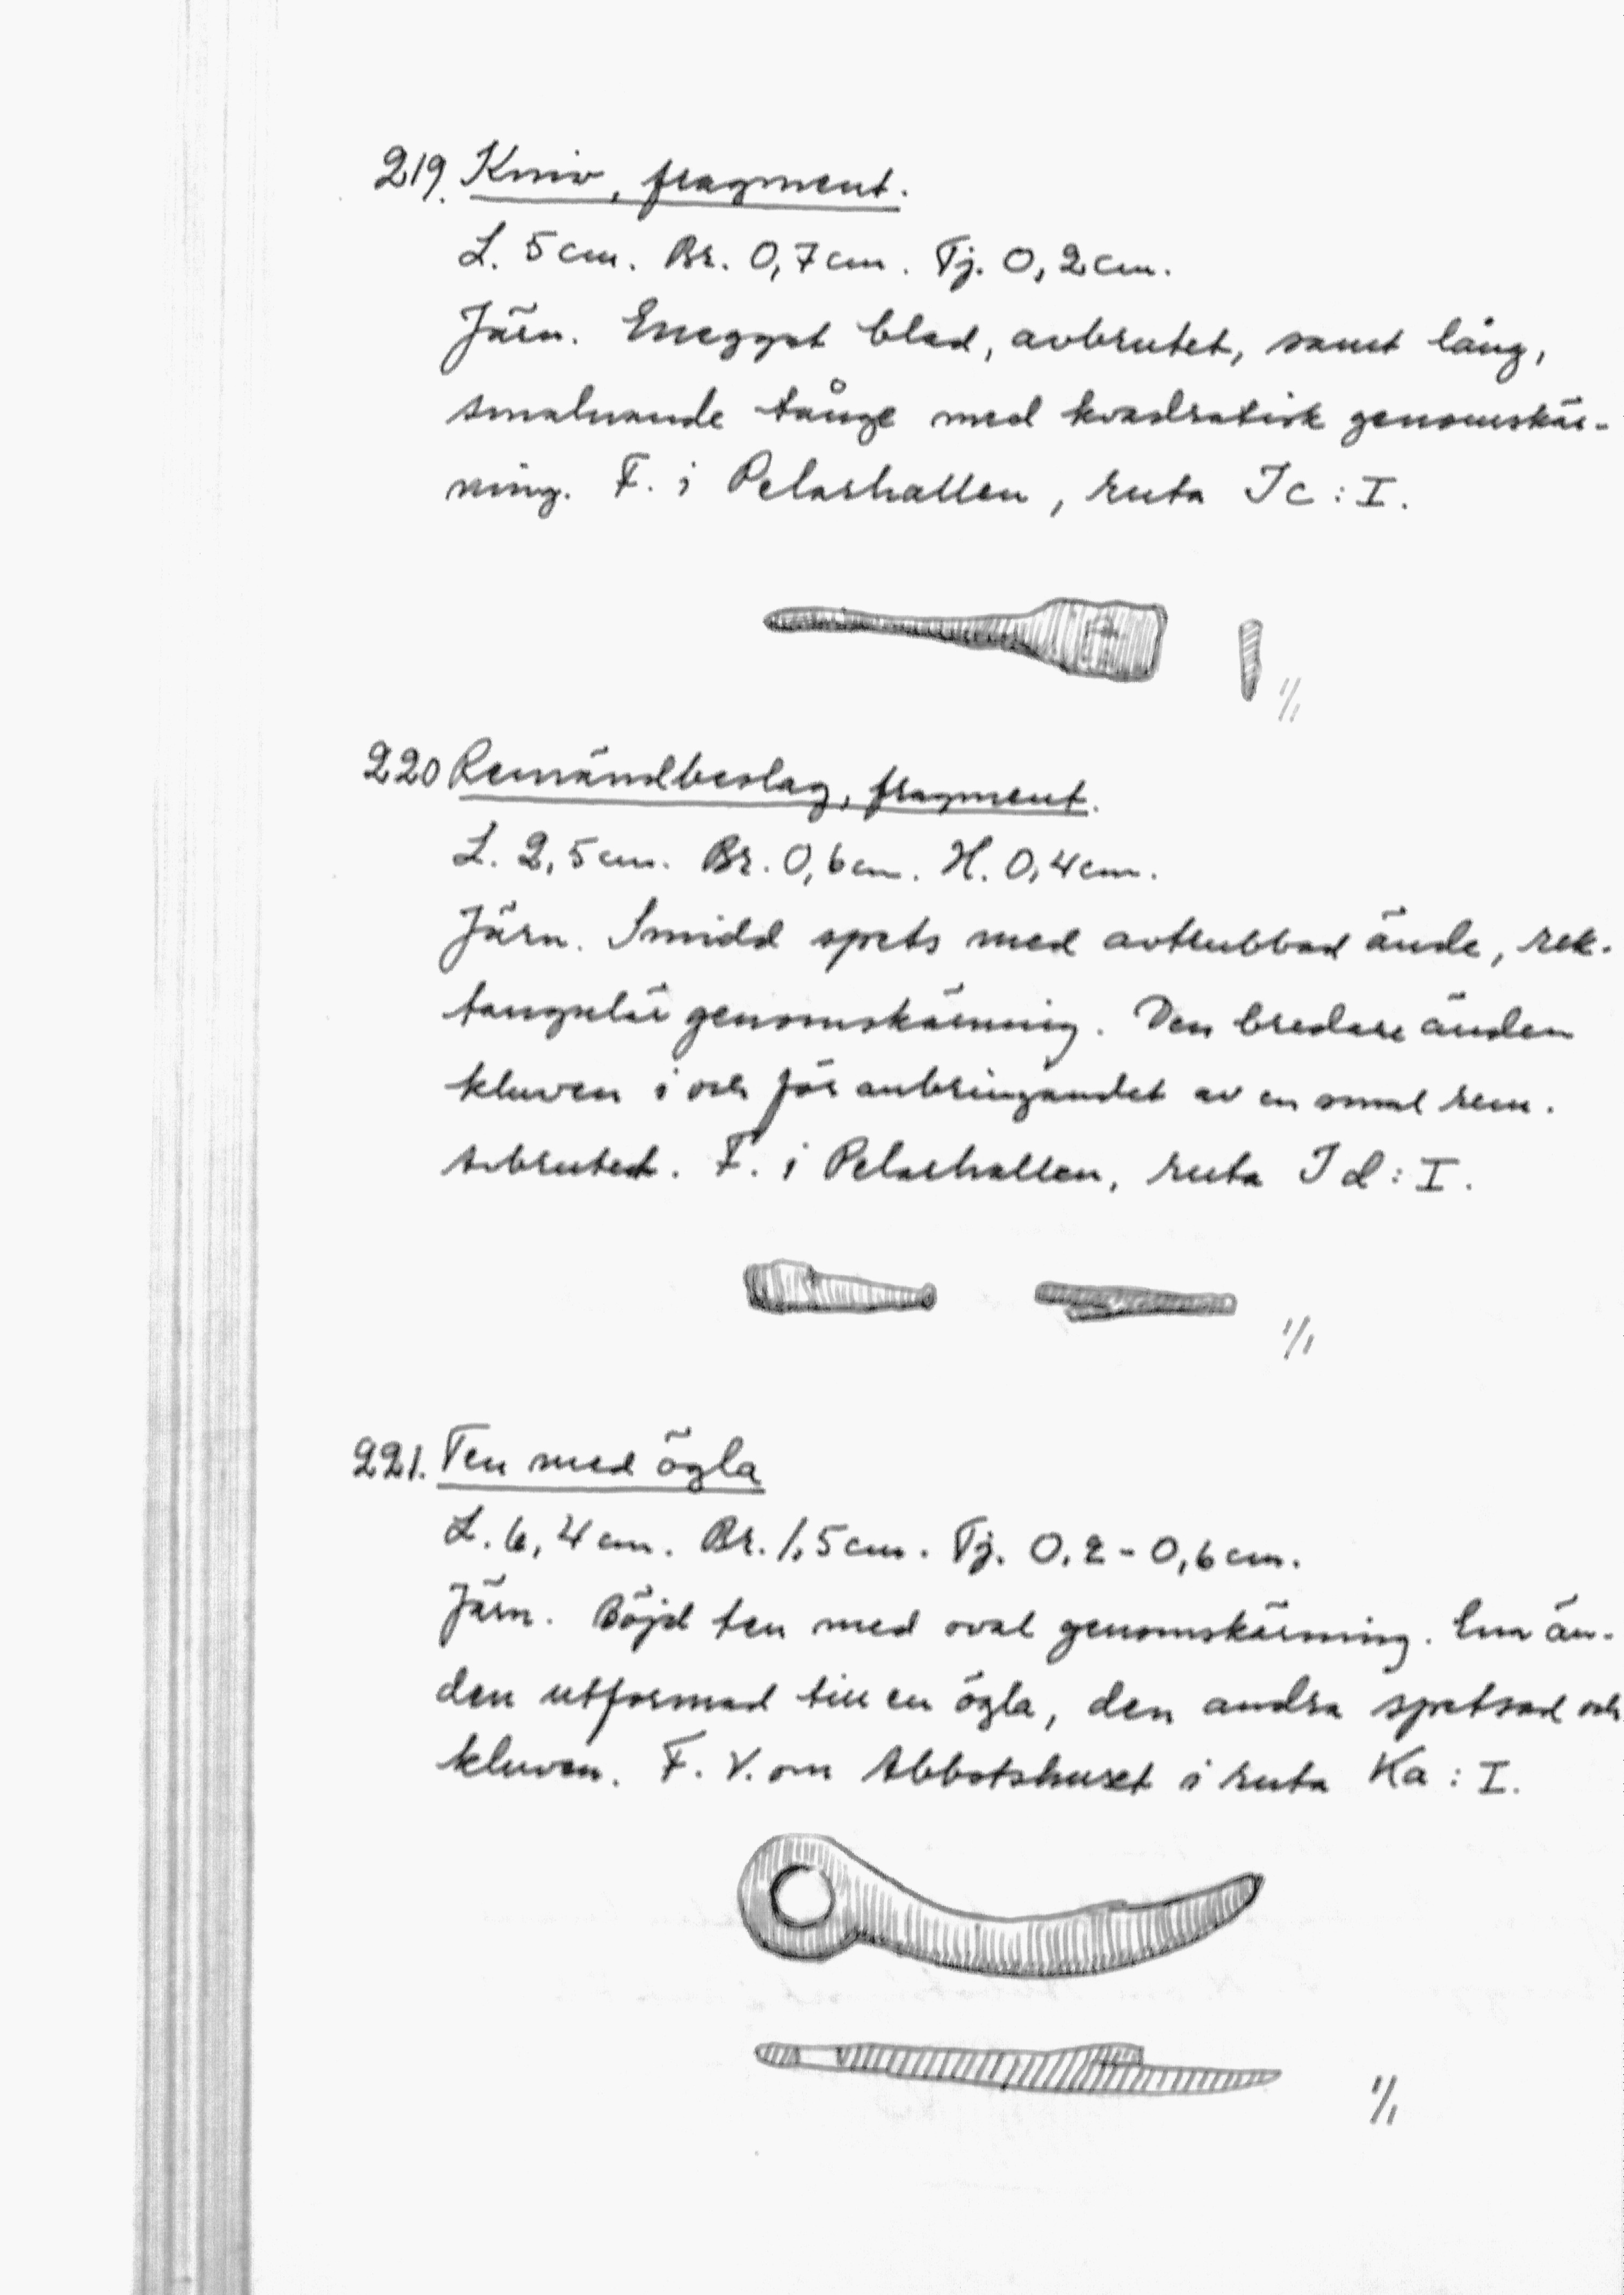 219. Kniv, fragment.
L. 5 cm. Br. 0,7 cm. Tj. 0,2 cm.
Järn. Eneggat blad, avbrutet, samt lång,
smalnande tånge med kvadratisk genomskär-
ning. F. i Pelarhallen, ruta Ic : I.
1/1
220 Remändbeslag, fragment.
L. 2,5 cm. Br. 0,6 cm. H. 0,4 cm.
Järn. Smidd spets med avtrubbad ände, rek-
tangulär genomskärning. Den bredare änden
kluven i och för anbringandet av en smal rem.
Avbrutet. F. i Pelarhallen, ruta Id : I.
1/1
221. Ten med ögla
L. 6,4 cm. Br. 1,5 cm. Tj. 0,2 - 0,6 cm.
Järn. Böjd ten med oval genomskärning. Ena än-
den utformad till en ögla, den andra spetsad och
kluven. F. V. om Abbotshuset i ruta Ka : I.
1/1